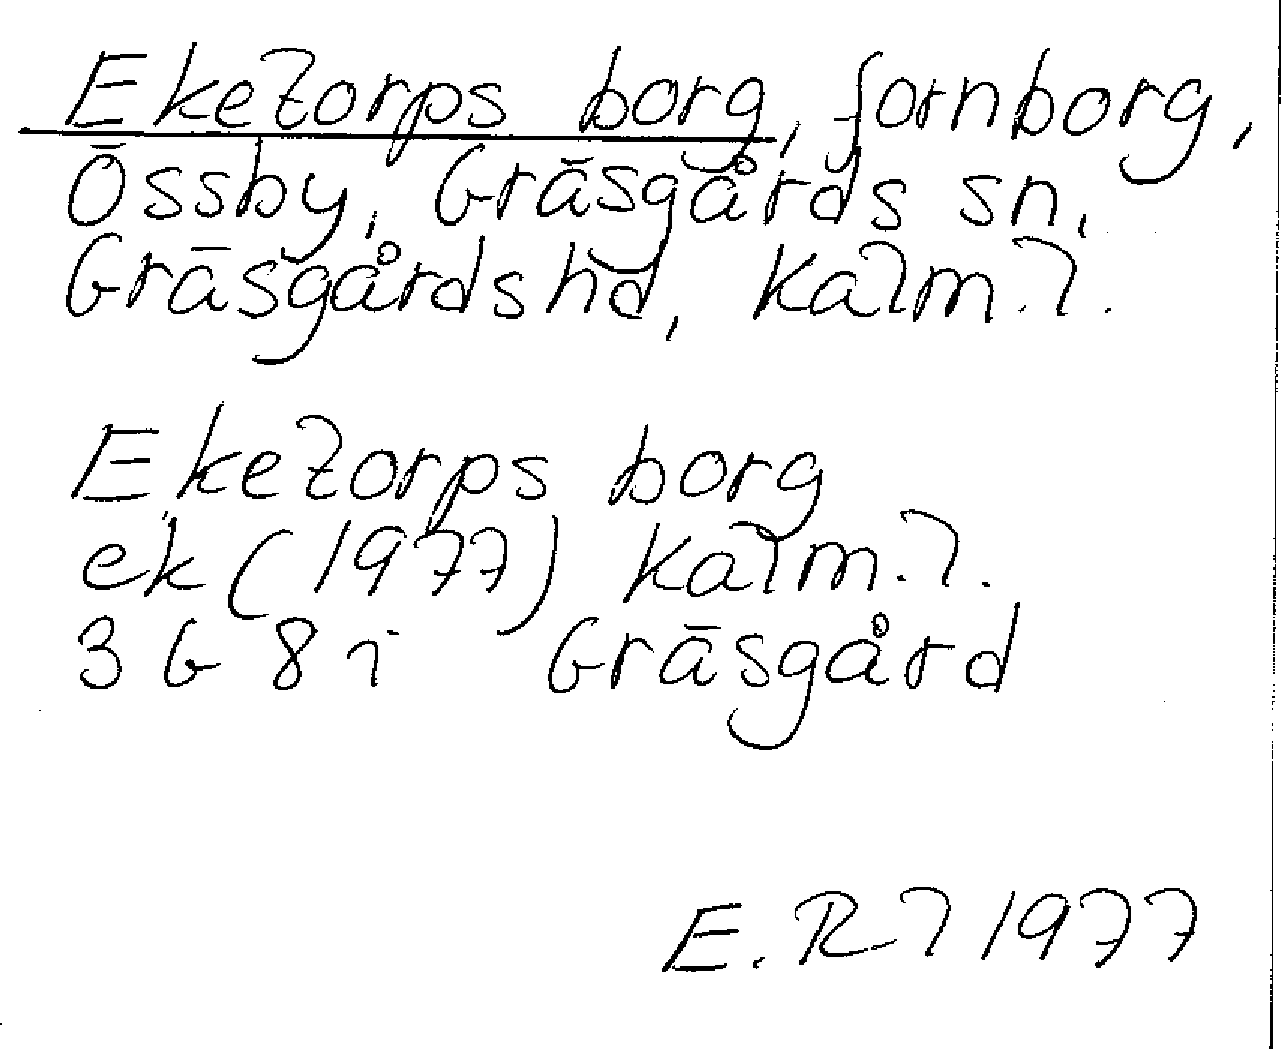 Eketorps borg, fornborg,
Össby, Gräsgårds sn,
Gräsgårds hd, Kalm. l.
Eketorps borg
ek (1977) Kalm. l.
3 G 8 i Gräsgård
E. Rl 1977